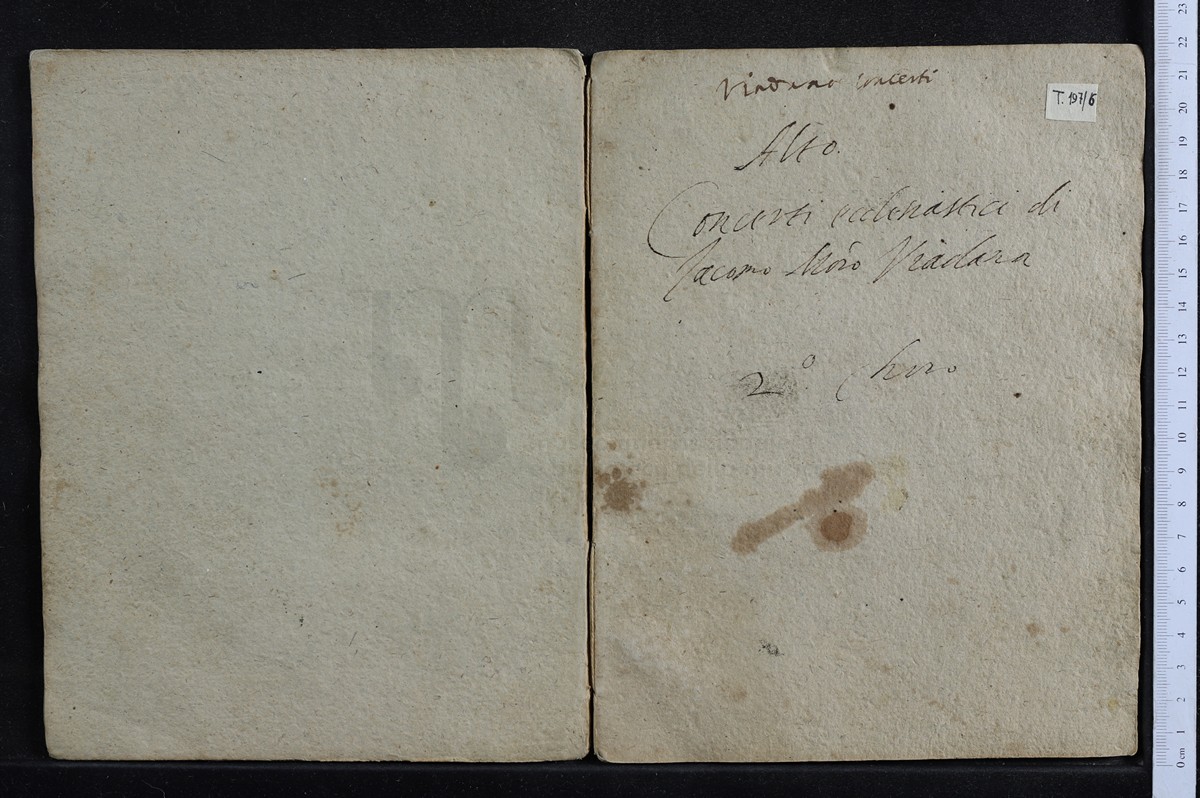 Viadana concerti
T. 197/6
Alto.
Concerti ecclesiastici di
Jacomo Moro Viadana
2º. Choro
23
22
21
20
19
18
17
16
15
14
13
12
11
10
9
8
7
6
5
4
3
2
1
0 cm